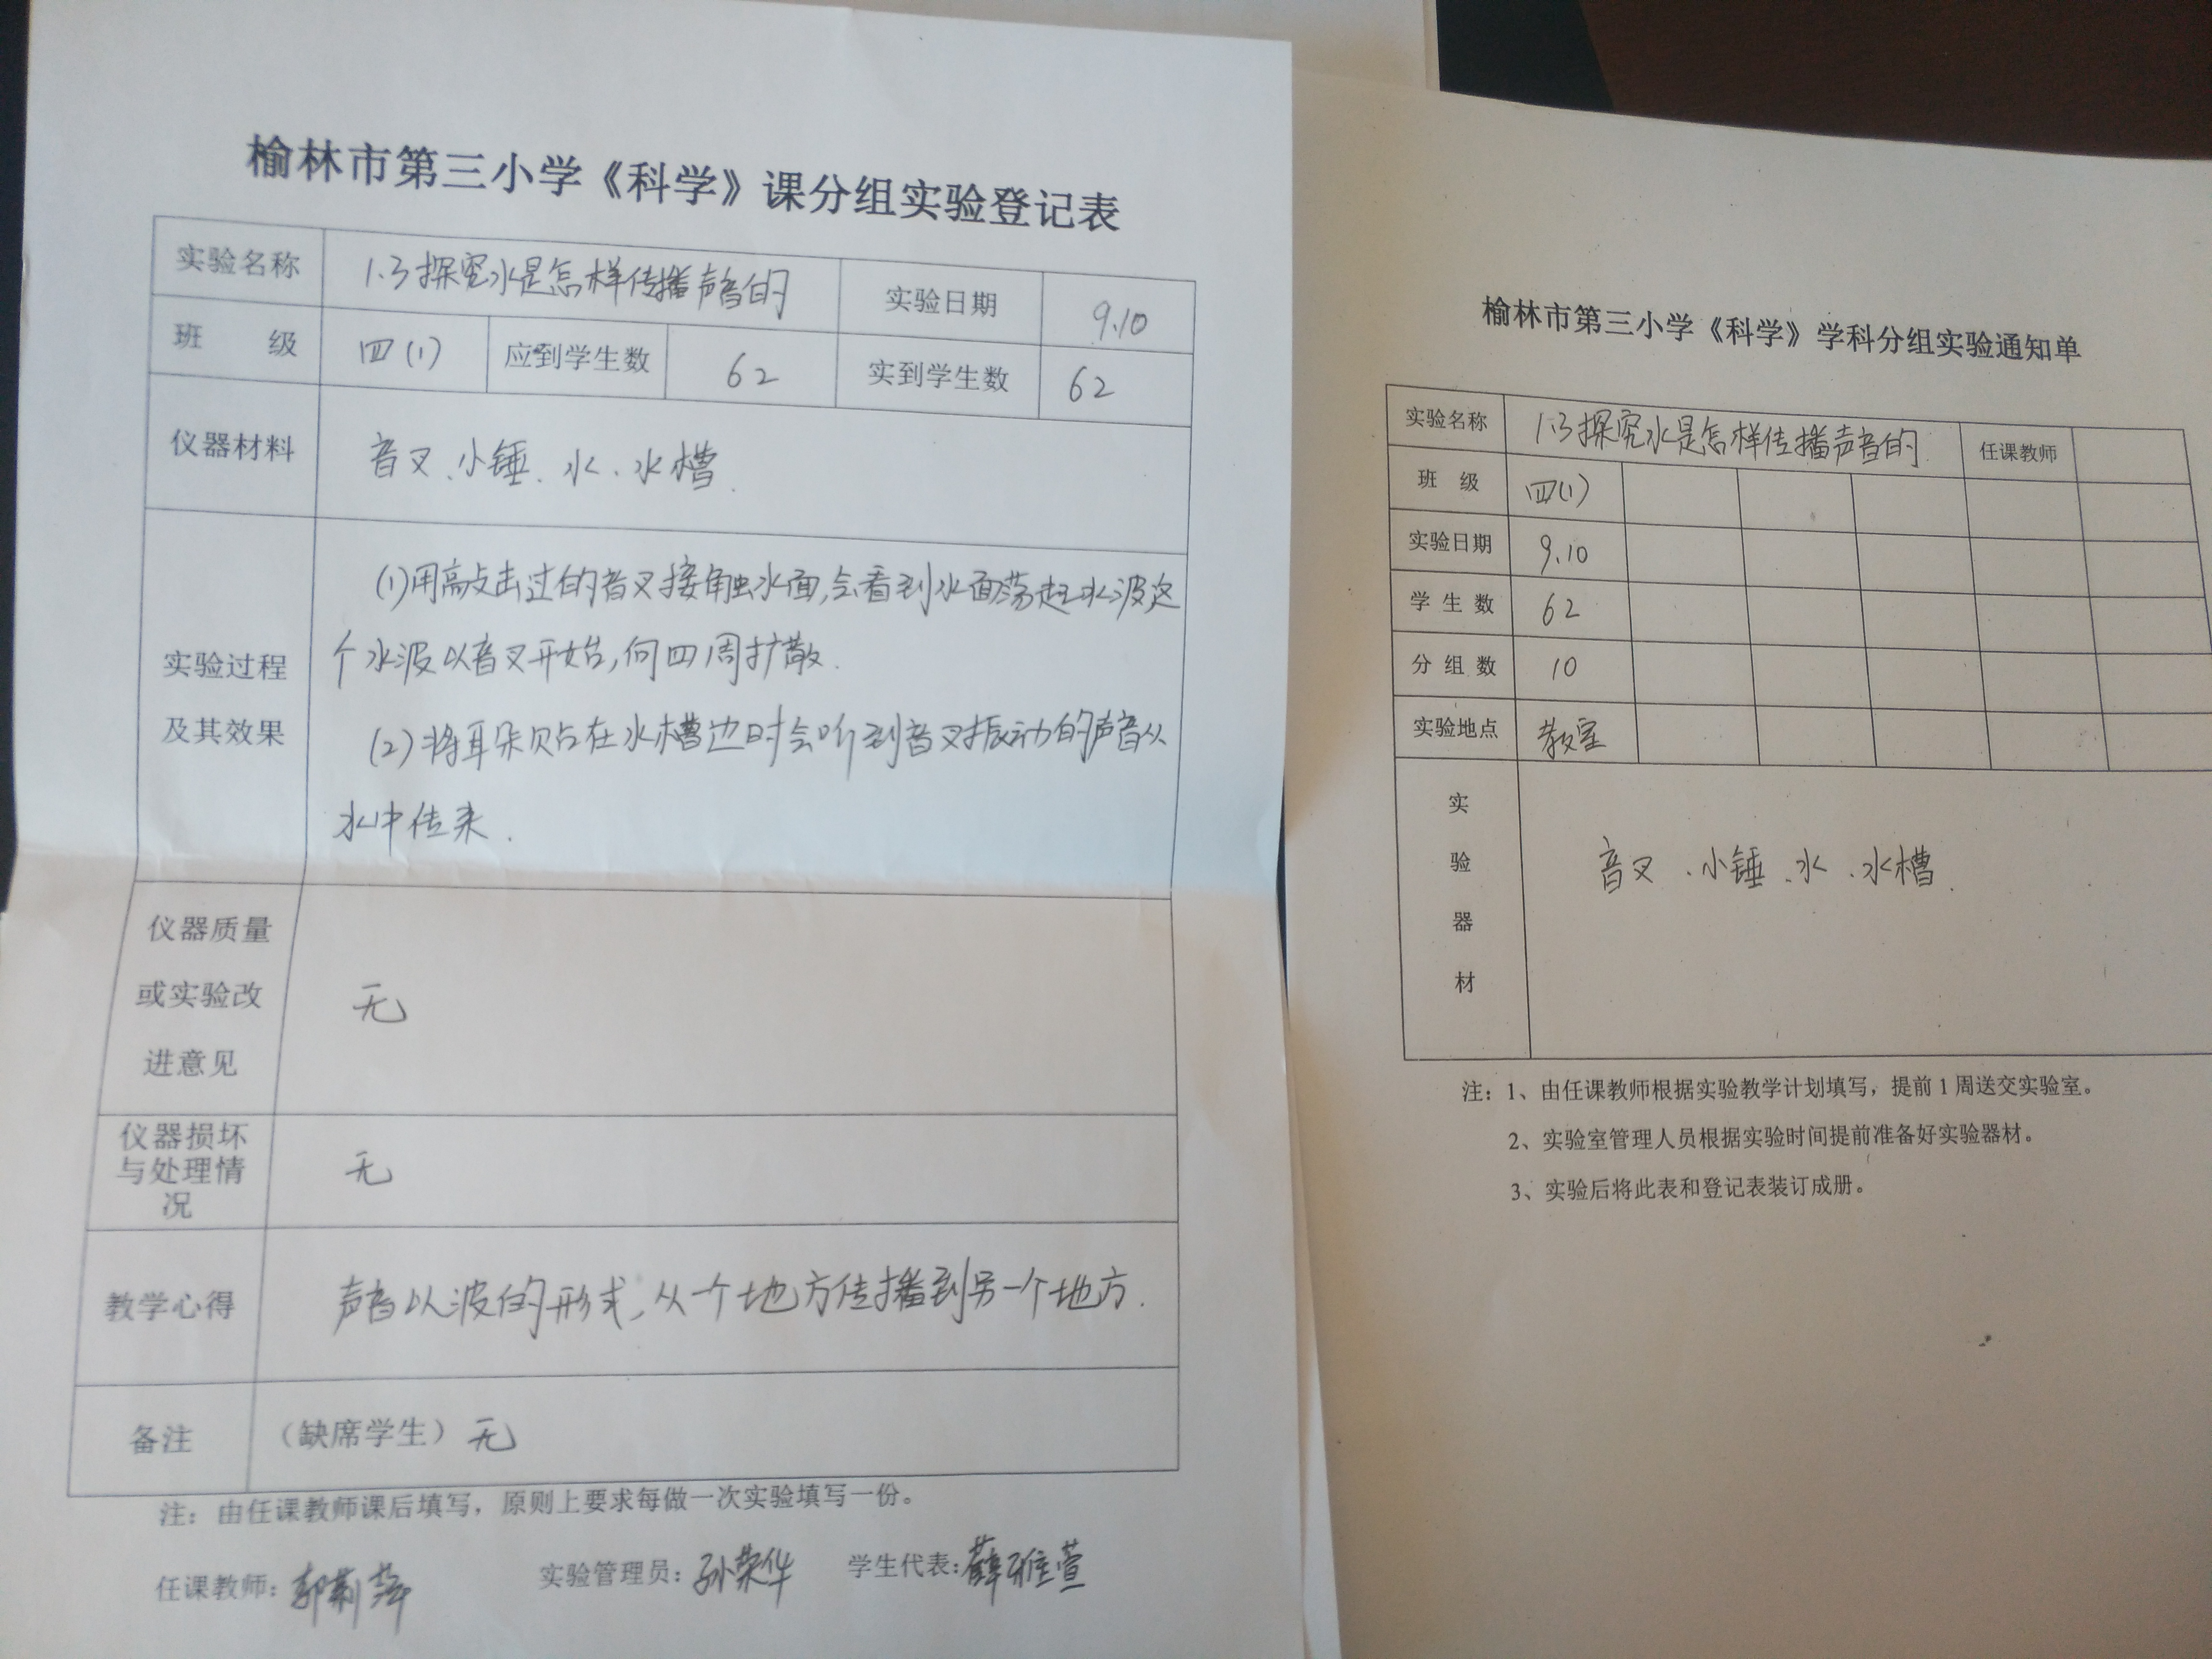 榆林市第三小学《科学》课分组实验登记表
实验名称 1.3探究水是怎样传播声音的 实验日期 9.10
班 级 四(1) 应到学生数 62 实到学生数 62
仪器材料 音叉、小锤、水、水槽.
(1)用高攴击过的音叉接触水面,会看到水面荡起水波这
个水波以音叉开始,向四周扩散.
实验过程
及其效果
(2)将耳朵贴在水槽边时会听到音叉振动的声音从
水中传来.
仪器质量
或实验改
进意见
无
仪器损坏
与处理情
况
无
教学心得 声音以波的形式,从个地方传播到另一个地方.
备注 (缺席学生)无
注：由任课教师课后填写，原则上要求每做一次实验填写一份。
任课教师: 实验管理员: 孙荣华 学生代表: 薛雅萱
榆林市第三小学《科学》学科分组实验通知单
实验名称 1.3探究水是怎样传播声音的 任课教师
班 级 四(1)
实验日期 9.10
学 生 数 62
分 组 数 10
实验地点 教室
实
验
器
材
音叉、小锤、水、水槽.
注：1、由任课教师根据实验教学计划填写，提前1周送交实验室。
2、实验室管理人员根据实验时间提前准备好实验器材。
3、实验后将此表和登记表装订成册。